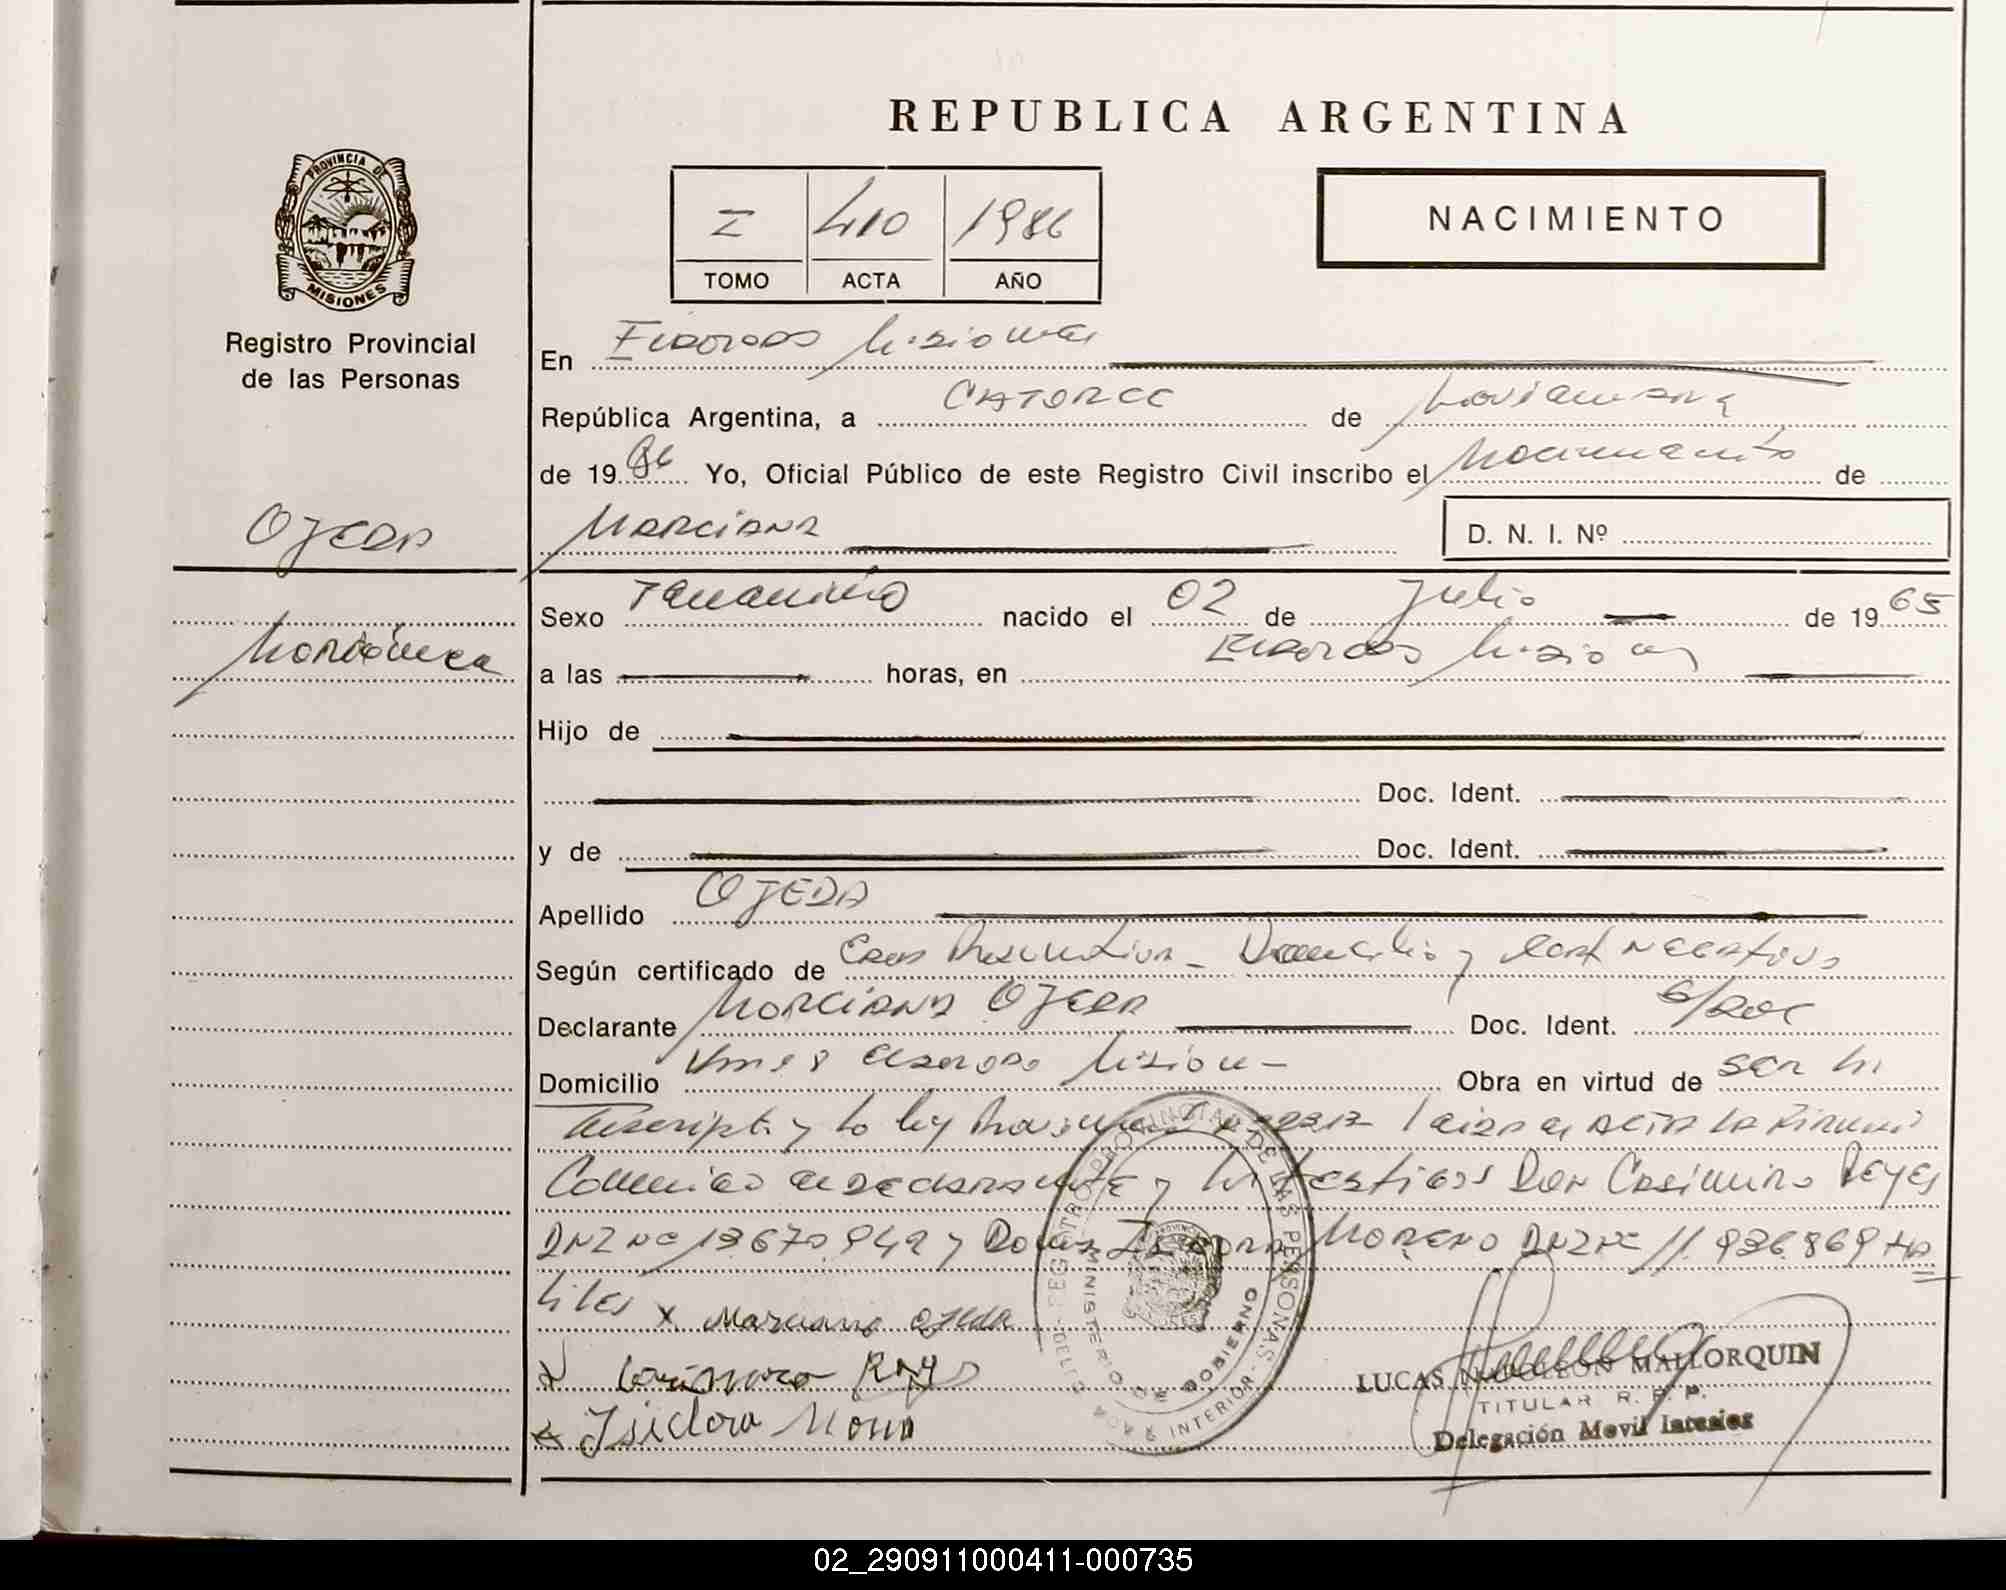 REPUBLICA ARGENTINA
PROVINCIA DE
MISIONES
Registro Provincial
de las Personas
I 410 1986
TOMO ACTA AÑO
NACIMIENTO
En Eldorado Misiones
República Argentina, a CATORCE de Noviembre
de 19 86 Yo, Oficial Público de este Registro Civil inscribo el Nacimiento de
OJEDA
MARCIANA
D. N. I. Nº
Marciana
Sexo Femenino nacido el 02 de Julio de 19 65
a las horas, en Eldorado Misiones
Hijo de
Doc. Ident.
y de Doc. Ident.
Apellido OJEDA
Según certificado de Edad Presuntiva - Domicilio y Cert Negativo
Declarante MARCIANA OJEDA Doc. Ident. S/Doc
Domicilio Eldorado Mision - Obra en virtud de ser la
Inscript. y la ley Leida el ACTA LA Firman
Conmigo el declarante y los testigos Don Casimiro Reyes
DNI Nº 13670949 y Doña Isidora MORENO DNI Nº 11.936.869 Ha
biles x Marciana Ojeda
Reyes
x Isidora Moren
REGISTRO PROVINCIAL DE LAS PERSONAS
MINISTERIO DE GOBIERNO
INTERIOR
LUCAS NAPOLEON MALLORQUIN
TITULAR R. P. P.
Delegación Movil
02_290911000411-000735